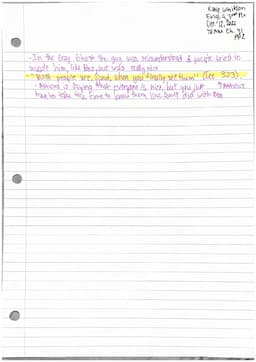 Eng 9, 3rd Hr
TKAM Ch. 31
- In the Gray Ghost the guy was misunderstood & people tried to
him, like Boo, but was really nice
"Most people are, Scout, when you finally see them" (Lee 323).
- Atticus is saying that everyone is nice, but you just
have to take the time to know them like Scout did with Boo